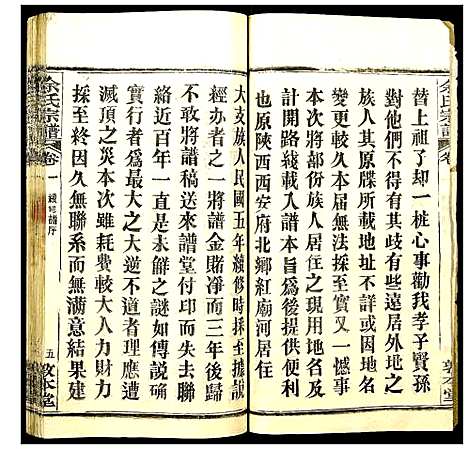 替上祖了却一桩心事勸我孝子賢孫
對他們不得有其歧有些遠居外地之
族人其原牒所載地址不詳或因其
變更較大多無法採至實又一憾事
本次將部份族人居住之現名及可
計開路綫載入譜本旨爲後提供
也原陝西西安府北鄉紅廟河居住
大支族人民國五年續修時採至合族
經办者之一將譜金賭净而三年後歸
不敢將譜稿送來譜堂付印而失去聯
絡近百年一直是未解之謎如傳説确
實行者爲最大之大逆不道者理應遭
滅頂之災本次雖耗費較大人力財力
採至終因久無聯系而無满意結果建
余氏宗譜
卷一
續修譜序
五
敦本堂
余氏宗譜
卷
敦本堂